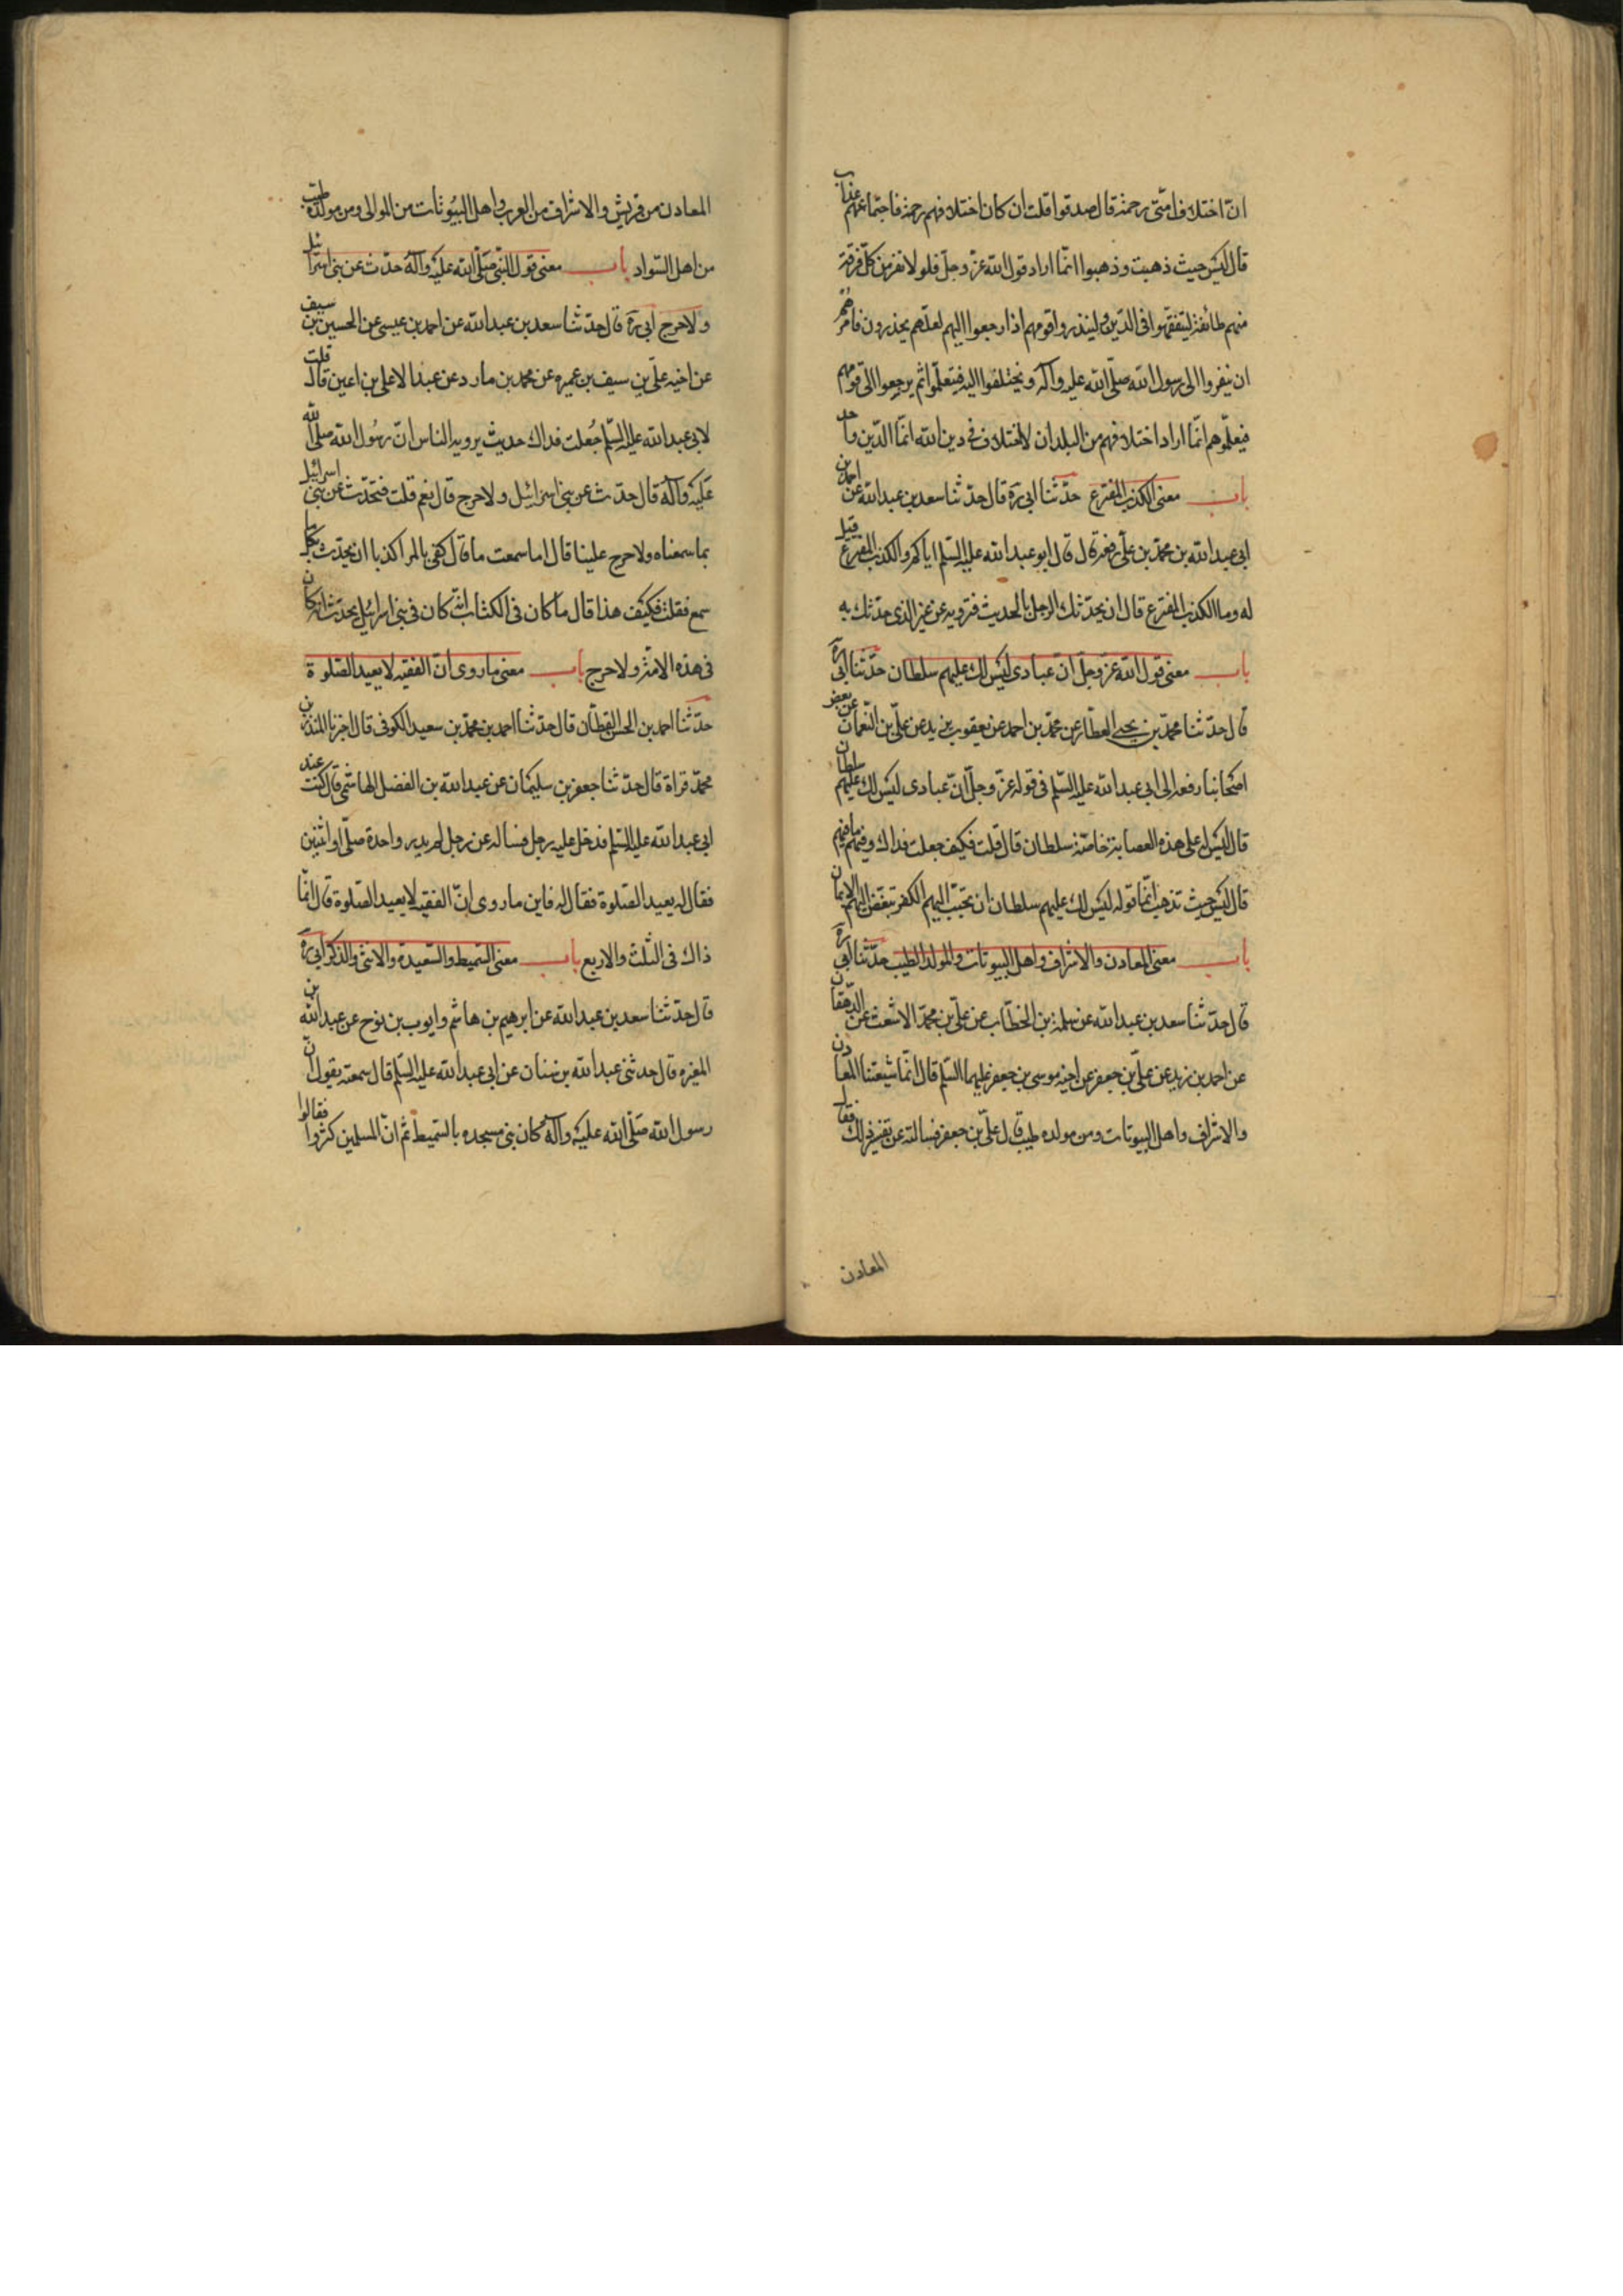 انّ اختلاف امّتى رحمة قال صدقوا قلت ان كان اختلافهم رحمة فاجتماعهم عذاب
قال ليس حيث ذهبت وذهبوا انّما اراد قول الله عزّ وجلّ فلولا نفر من كلّ فرقة
منهم طائفة ليتفقّهوا فى الدّين ولينذروا قومهم اذا رجعوا اليهم لعلّهم يحذرون فامرهم
ان ينفروا الى رسول الله صلّى الله عليه وآله ويختلفوا اليه فيتعلّموا ثم يرجعوا الى قومهم
فيعلّموهم انّما اراد اختلافهم من البلدان لا اختلاف فى دين الله انّما الدّين واحد
باب معنى الكذب المفترع حدّثنا ابى ره قال حدّثنا سعد بن عبدالله عن احمد بن
ابى عبدالله بن محمّد بن على رفعه قال قال ابو عبدالله عليه السّلم اياكم والكذب المفترع قيل
له وما الكذب المفترع قال ان يحدّثك الرجل بالحديث فترويه عن غير الذى حدّثك به
باب معنى قول الله عزّ وجلّ انّ عبادى ليس لك عليهم سلطان حدّثنا ابى ره
قال حدّثنا محمّد بن يحيى العطّار عن محمّد بن احمد عن يعقوب بن يزيد عن علىّ بن النّعمان عن بعض
اصحابنا رفعه الى ابى عبدالله عليه السّلم فى قوله عزّ وجلّ انّ عبادى ليس لك عليهم سلطان
قال ليس له على هذه العصابة خاصّة سلطان قال قلت فكيف جعلت فداك وفيهم ما فيهم
قال ليس حيث تذهب انّما قوله ليس لك عليهم سلطان ان يحبّب اليهم الكفر ويبغّض اليهم الايمان
باب معنى المعادن والاشراف واهل البيوتات والمولد الطيب حدّثنا ابى ره
قال حدّثنا سعد بن عبدالله عن سلمة بن الخطّاب عن علىّ بن محمّد الاشعث عن الدّهقان
عن احمد بن زيد عن علىّ بن جعفر عن اخيه موسى بن جعفر عليهما السّلم قال انّما شيعتنا المعادن
والاشراف واهل البيوتات ومن مولده طيب قال علىّ بن جعفر فسالته عن تفسير ذلك فقال
المعادن
المعادن من قريش والاشراف من العرب واهل البيُوتات من الموالى ومن مولده طيب
من اهل السّواد باب معنى قول النّبى صَلّى الله عليْه وآله حدّث عن بنى اسرائيل
ولا حرج ابى ره قال حدّثنا سعد بن عبدالله عن احمد بن عيسى عن الحسين بن سيف
عن اخيه علىّ بن سيف بن عميره عن محمد بن مارد عن عبد الاعلى بن اعين قال قلت
لابى عبدالله عليه السّلم جُعلت فداك حديث يرويه الناس انّ رسُول الله صلى الله
عَليْه وآله قال حدّث عن بنى اسرائيل ولا حرج قال نعم قلت فنحّدث عن بنى اسرائيل
بما سمعناه ولا حرج علينا قال اما سمعت ما قال كفى بالمرا كذبا ان يحدّث بكل ما
سمع فقلت فكيْف هذا قال ما كان فى الكتاب انّه كان فى بنى اسرائيل يحدّث انه كان
فى هذه الامّة ولا حرج باب معنى ما روى انّ الفقيه لا يعيد الصّلوة
حدّثنا احمد بن الحسن القطّان قال حدّثنا احمد بن محمّد بن سعيد الكوفى قال اخبرنا المنذر بن
محمّد قراة قال حدّثنا جعفر بن سليمان عن عبدالله بن الفضل الهاشمى قال كنت عند
ابى عبدالله عليه السّلم فدخل عليه رجل فساله عن رجل لم يدر واحدة صلّى او اثنين
فقال له يعيد الصّلوة فقال له فاين ما روى انّ الفقيه لا يعيد الصّلوة قال انّما
ذاك فى الثّلث والاربع باب معنى السّميط والسّعيدة والانثى والذكر ابى ره
قال حدّثنا سعد بن عبدالله عن ابرهيم بن هاشم وايوب بن نوح عن عبدالله بن
المغيره قال حدثنى عبدالله بن سنان عن ابى عبدالله عليه السّلم قال سمعته يقول انّ
رسول الله صَلّى الله عليْه وآله كان بنى مسجده بالسّميط ثمّ انّ المسلمين كثروا فقالوا